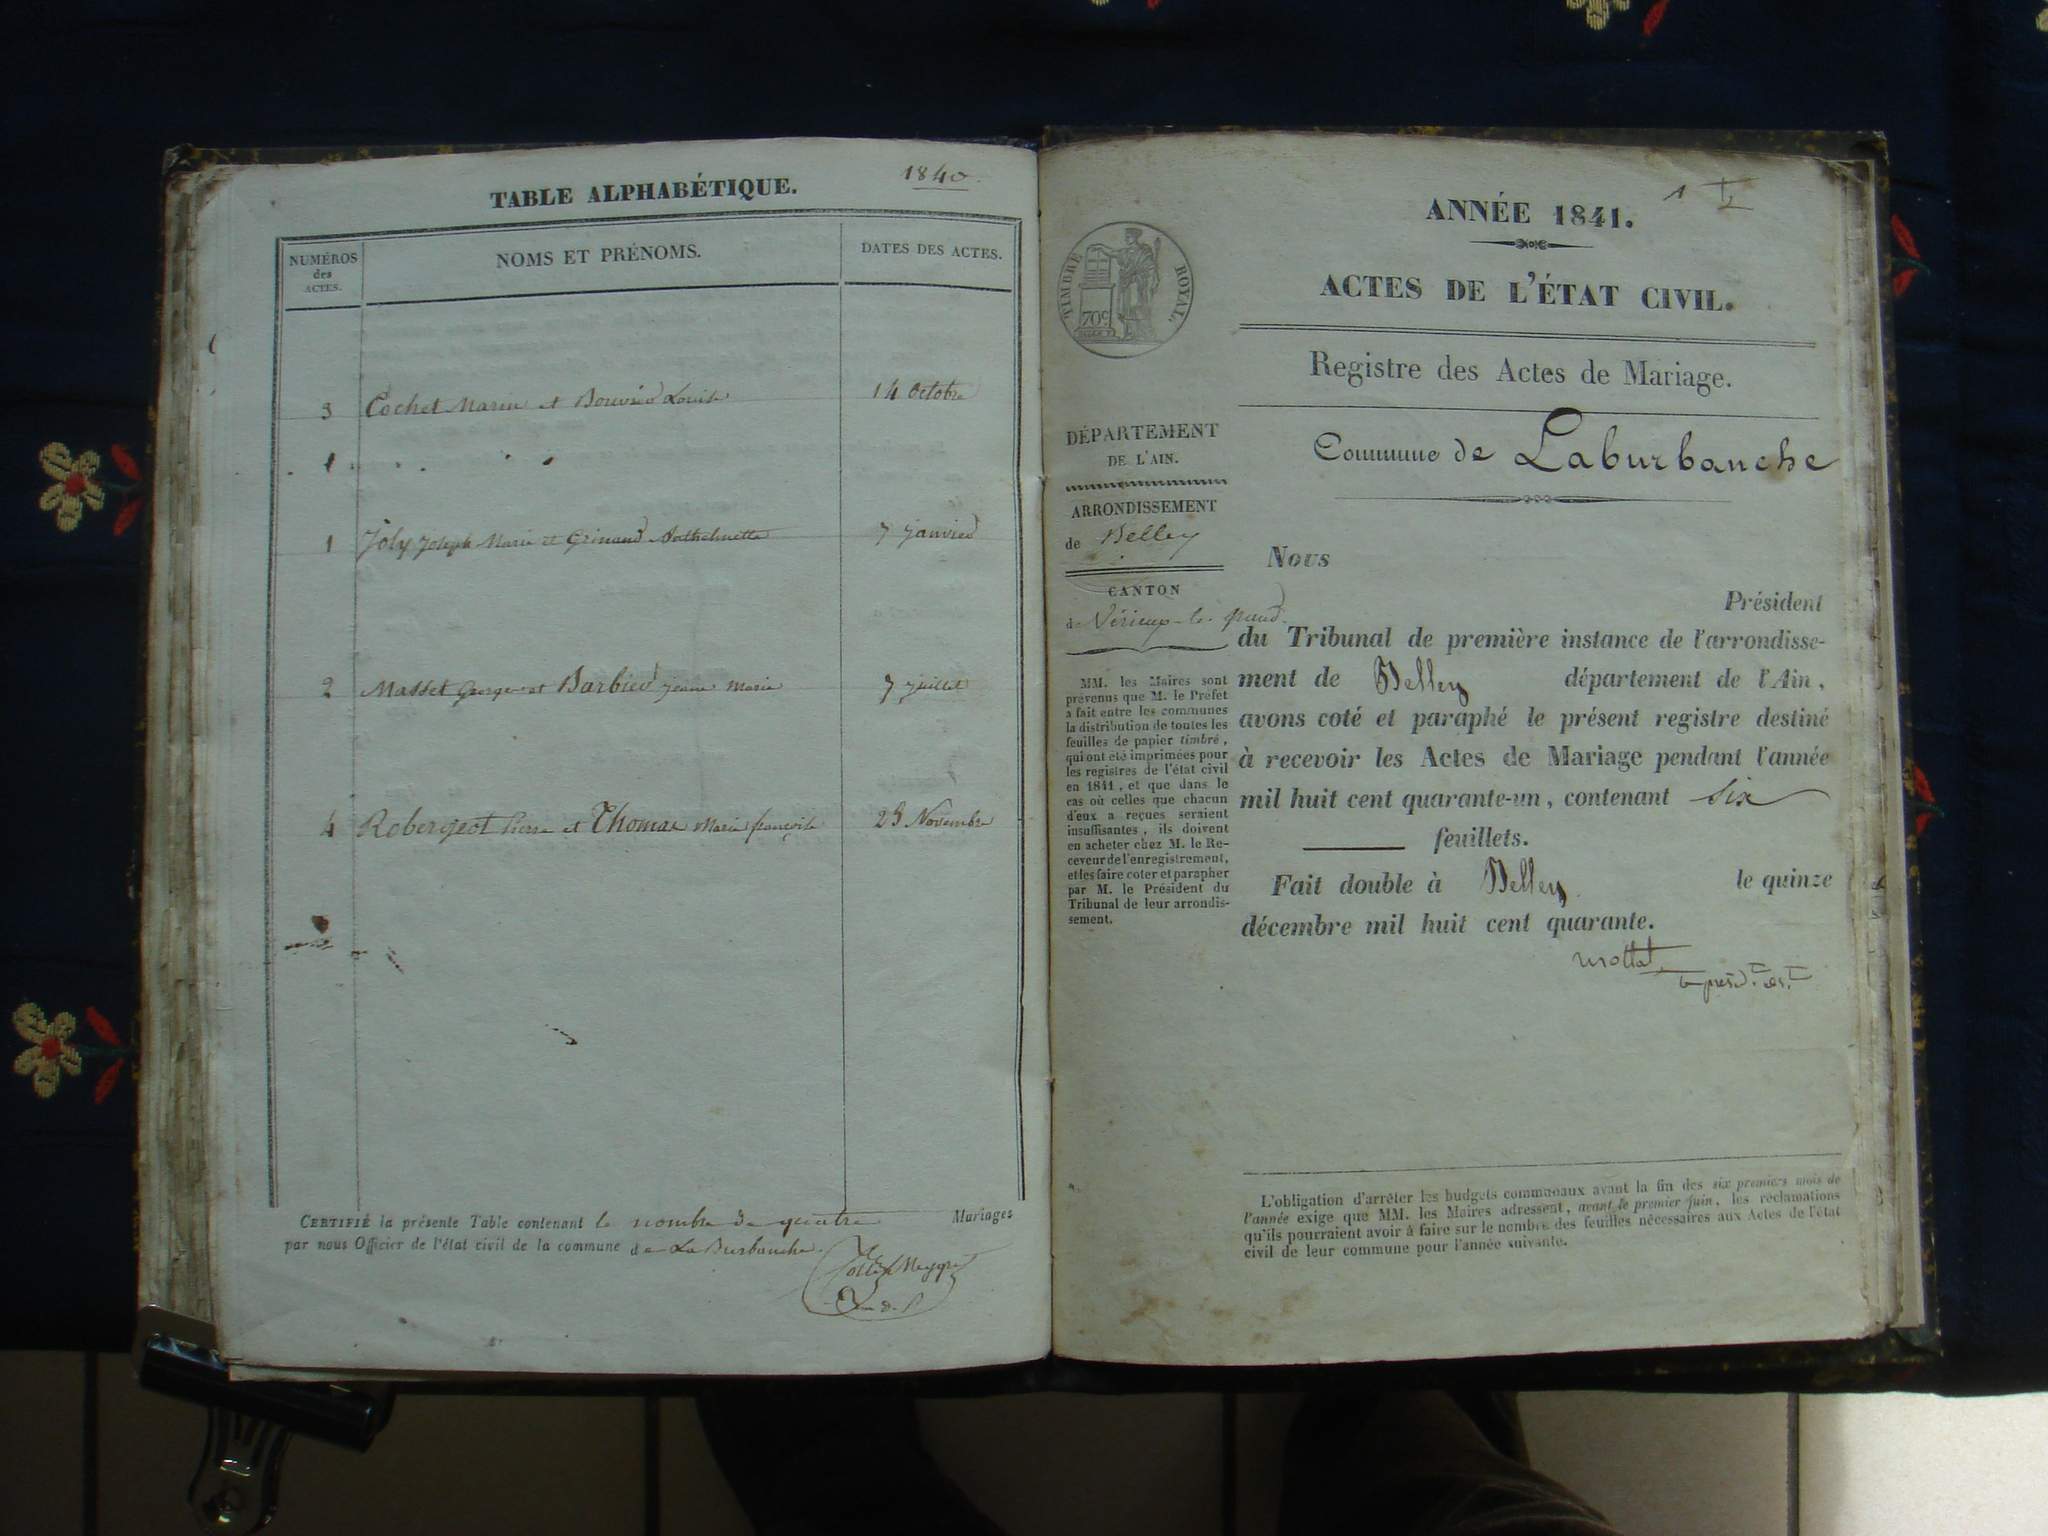 1840.
TABLE ALPHABÉTIQUE.
NUMÉROS
des
ACTES.
NOMS ET PRÉNOMS.
DATES DES ACTES.
3 Cochet Marin et Bouvier Louise 14 Octobre
1 Joly Joseph Marie et Grinand Anthelmette 7 janvier
2 Masset George et Barbier jeanne Marie 7 juillet
4 Roberjeot Pierre et Thomas Marie françoise 23 Novembre
CERTIFIÉ la présente Table contenant le nombre de quatre Mariages
par nous Officier de l'état civil de la commune de La Burbanche.
1
ANNÉE 1841.
ACTES DE L'ÉTAT CIVIL.
TIMBRE ROYAL.
70c
Registre des Actes de Mariage.
Commune de Laburbanche
DÉPARTEMENT
DE L'AIN.
ARRONDISSEMENT
de Belley
CANTON
de Virieu-le-grand.
MM. les Maires sont
prévenus que M. le Préfet
a fait entre les communes
la distribution de toutes les
feuilles de papier timbré,
qui ont été imprimées pour
les registres de l'état civil
en 1841, et que dans le
cas où celles que chacun
d'eux a reçues seraient
insuffisantes, ils doivent
en acheter chez M. le Re-
ceveur de l'enregistrement,
et les faire coter et parapher
par M. le Président du
Tribunal de leur arrondis-
sement.
Nous
Président
du Tribunal de première instance de l'arrondisse-
ment de Belley département de l'Ain,
avons coté et paraphé le présent registre destiné
à recevoir les Actes de Mariage pendant l'année
mil huit cent quarante-un, contenant Six
feuillets.
Fait double à Belley le quinze
décembre mil huit cent quarante.
L'obligation d'arrêter les budgets communaux avant la fin des six premiers mois de
l'année exige que MM. les Maires adressent, avant le premier juin, les réclamations
qu'ils pourraient avoir à faire sur le nombre des feuilles nécessaires aux Actes de l'état
civil de leur commune pour l'année suivante.